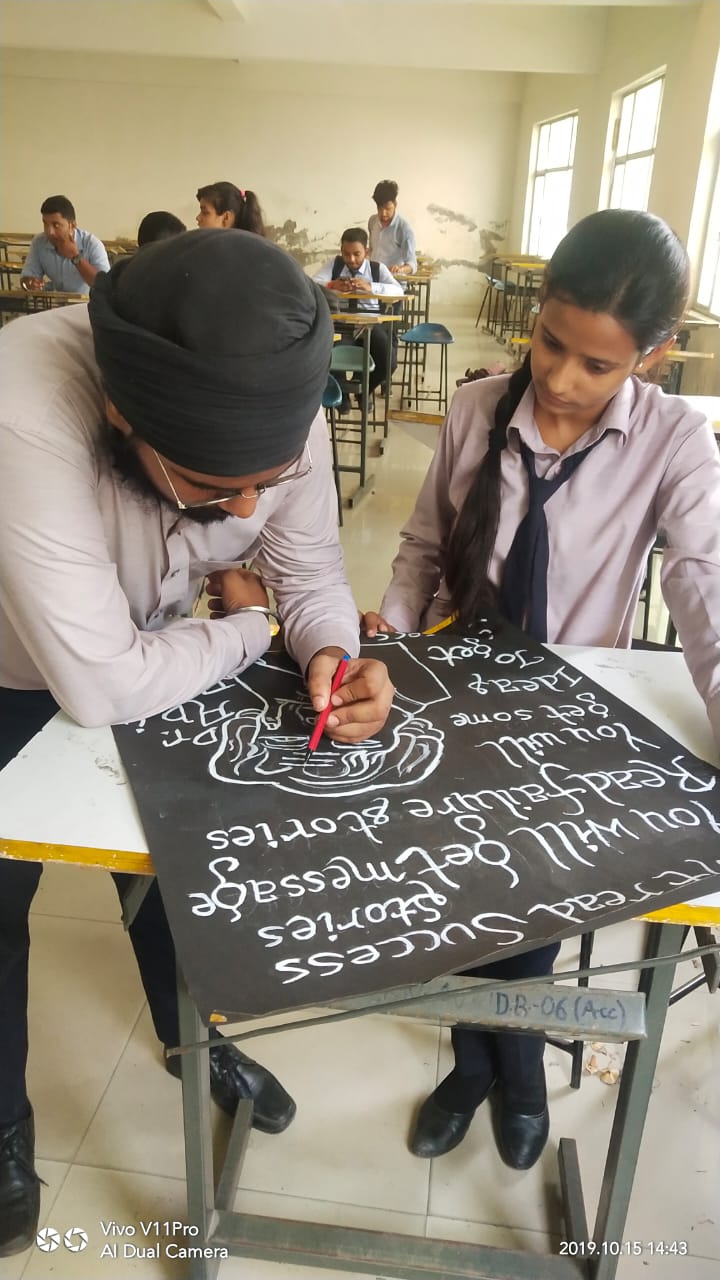 't read Success
stories
You will get message
Read failure stories
You will
get some
Ideas
To get
Dr.
D.R-06 (Acc)
Vivo V11Pro
AI Dual Camera
2019.10.15 14:43